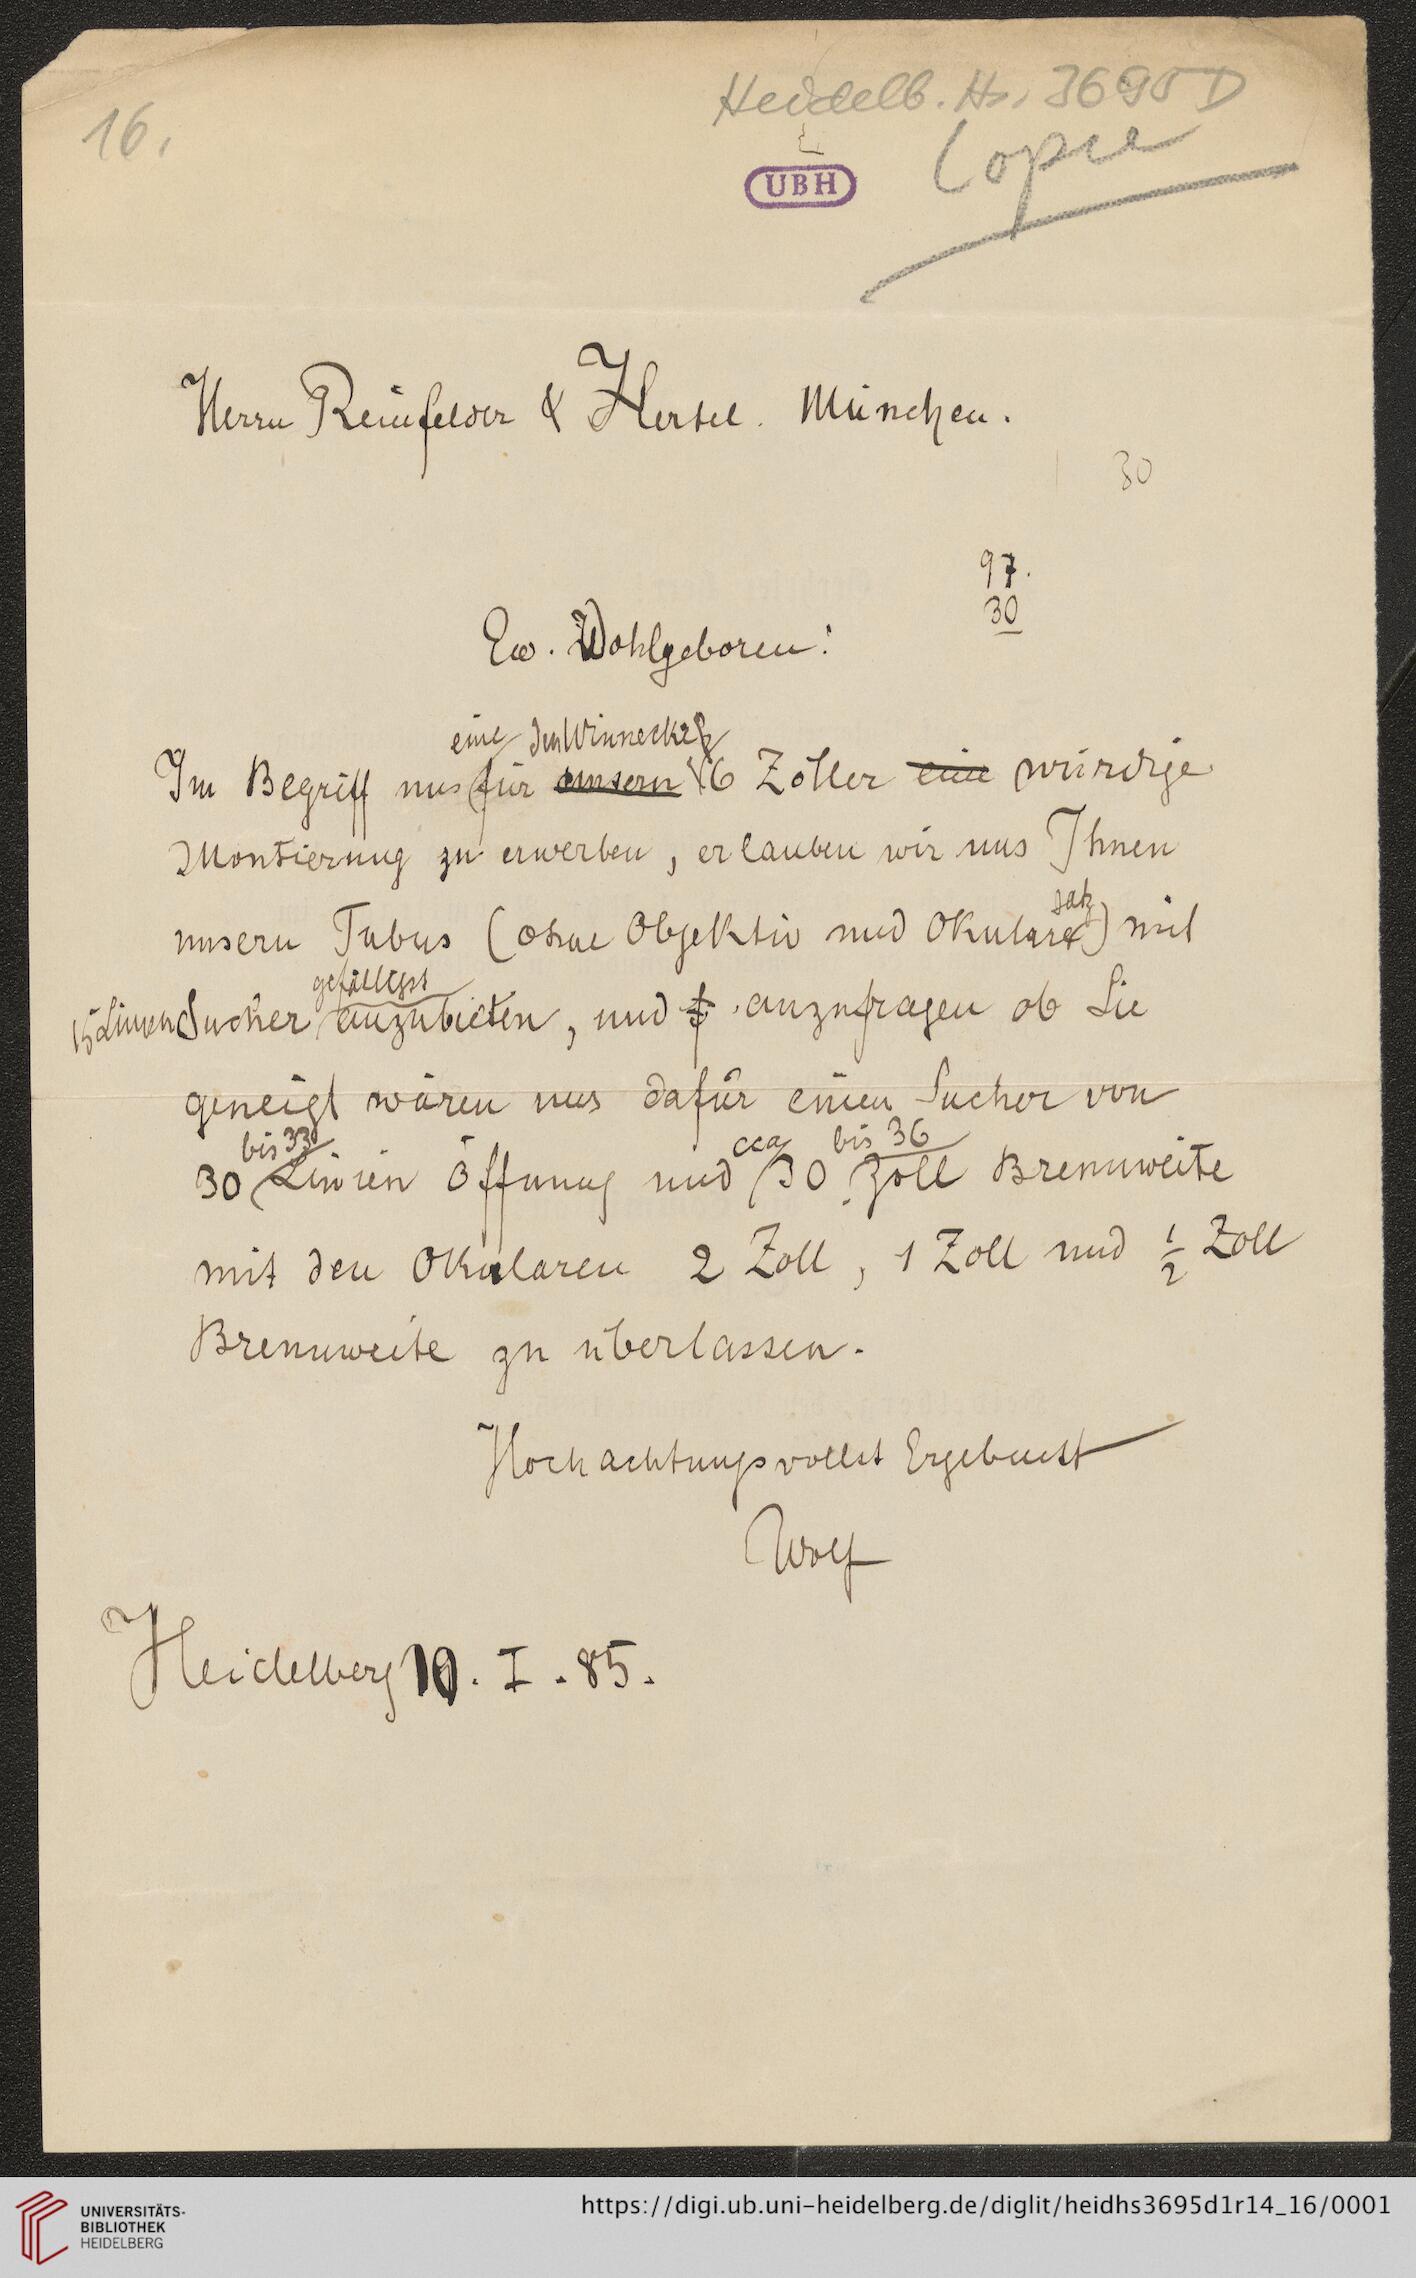 16.
Heidelb. Hs. 3695 D
Copie
UBH
Herrn Reinfelder & Hertel. München.
30
97.
30
Ew. Wohlgeboren!
eine den Winnecke
Im Begriff uns für unsern 6 Zöller eine würdige
Montierung zu erwerben, erlauben wir uns Ihnen
satz
unsern Tubus (ohne Objektiv und Okulare) mit
gefälligst
15 Linien Sucher anzubieten, und anzufragen ob Sie
geneigt wären uns dafür einen Sucher von
bis 33 cca bis 36
30 Linien Öffnung und 30 Zoll Brennweite
mit den Okularen 2 Zoll, 1 Zoll und 1/2 Zoll
Brennweite zu überlassen.
Hochachtungsvollst Ergebenst
Wolf
Heidelberg 10. I. 85.
UNIVERSITÄTS-
BIBLIOTHEK
HEIDELBERG
https://digi.ub.uni-heidelberg.de/diglit/heidhs3695d1r14_16/0001